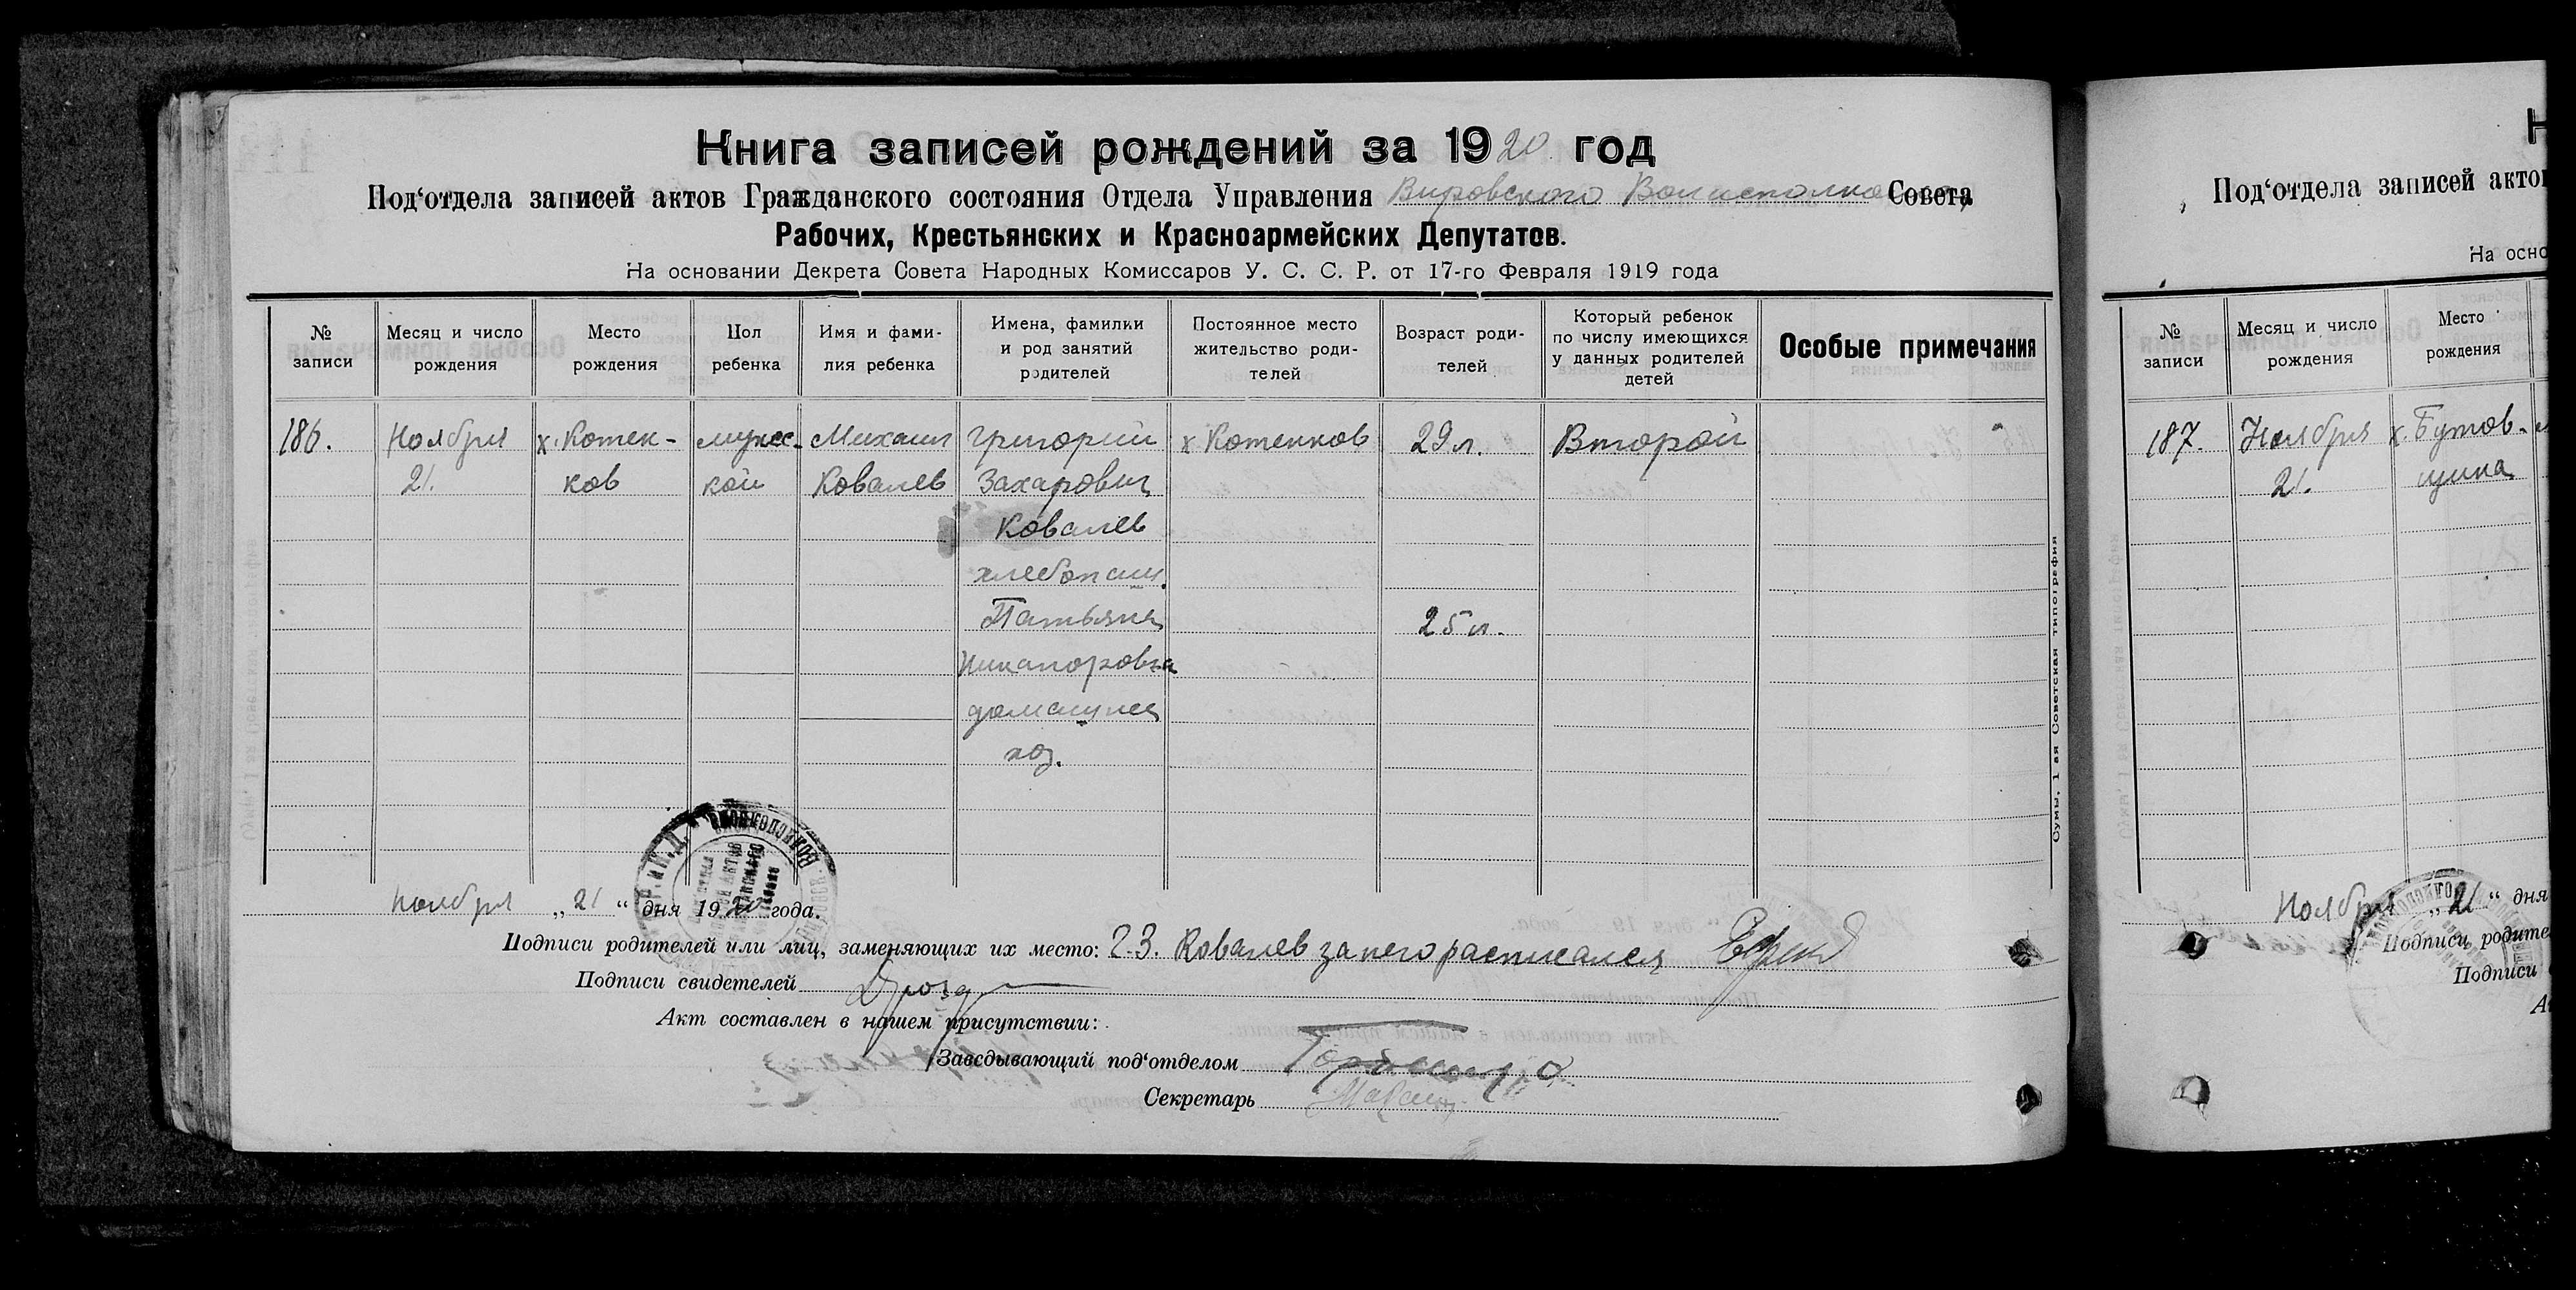 Книга записей рождений за 1920 год
Под‘отдела записей актов Гражданского состояния Отдела Управления Вировского Волисполкома Совета
Рабочих, Крестьянских и Красноармейских Депутатов.
На основании Декрета Совета Народных Комиссаров У. С. С. Р. от 17-го Февраля 1919 года
№ записи
Месяц и число рождения
Место рождения
Пол ребенка
Имя и фами-
лия ребенка
Имена, фамилии
и род занятий
родителей
Постоянное место
жительство роди-
телей
Возраст роди-
телей
Который ребенок
по числу имеющихся
у данных родителей
детей
Особые примечания
186.
Ноября
21.
х. Котен-
ков
мужес-
кой
Михаил
Ковалев
Григорий
Захарович
Ковалев
хлебопаш.
Татьяна
Никаноровна
домашнее
хоз.
х Котенков
29 л.
25 л.
Второй
Сумы, 1 ая Советская типография
ноября „21“ дня 1920 года.
Подписи родителей или лиц, заменяющих их место: Г. З. Ковалев за него расписался
Подписи свидетелей Дрозд
Акт составлен в нашем присутствии:
Заведывающий под‘отделом
Секретарь
Н
Под‘отдела записей актов
На осно
№ записи
Месяц и число рождения
Место рождения
187.
Ноября
21.
х. Бутов-
щина
Ноября „21“ дня
Подписи родите
Подписи
А